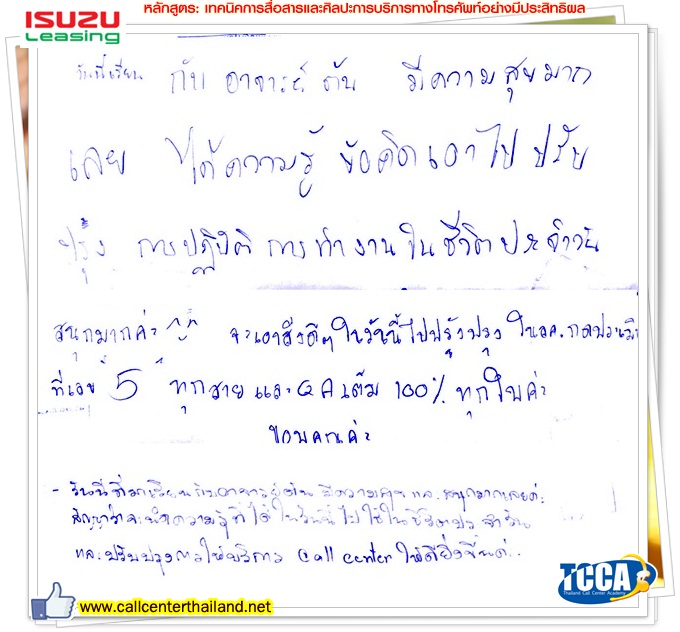 ISUZU
Leasing
หลักสูตร: เทคนิคการสื่อสารและศิลปะการบริการทางโทรศัพท์อย่างมีประสิทธิผล
วันนี้เรียน กับ อาจารย์ต้น มีความสุขมาก
เลย ได้ความรู้ ข้อคิดเอาไปปรับ
ปรุง การปฏิบัติ การทำงานในชีวิตประจำวัน
สนุกมากค่ะ จะเอาสิ่งดีๆในวันนี้ไปปรุงปรุง ให้ลค.กดประเมิน
ที่เลข "5" ทุกสาย และ QA เต็ม 100% ทุกใบค่ะ
ขอบคุณค่ะ
- วันนี้ที่มาเรียนกับอาจารย์ต้น มีความสุข และ สนุกมากเลยค่ะ
สัญญาว่าจะนำความรู้ที่ได้ในวันนี้ไปใช้ในชีวิตประจำวัน
และปรับปรุงการให้บริการ Call center ให้ดียิ่งขึ้นค่ะ..
www.callcenterthailand.net
TCCA
Thailand Call Center Academy